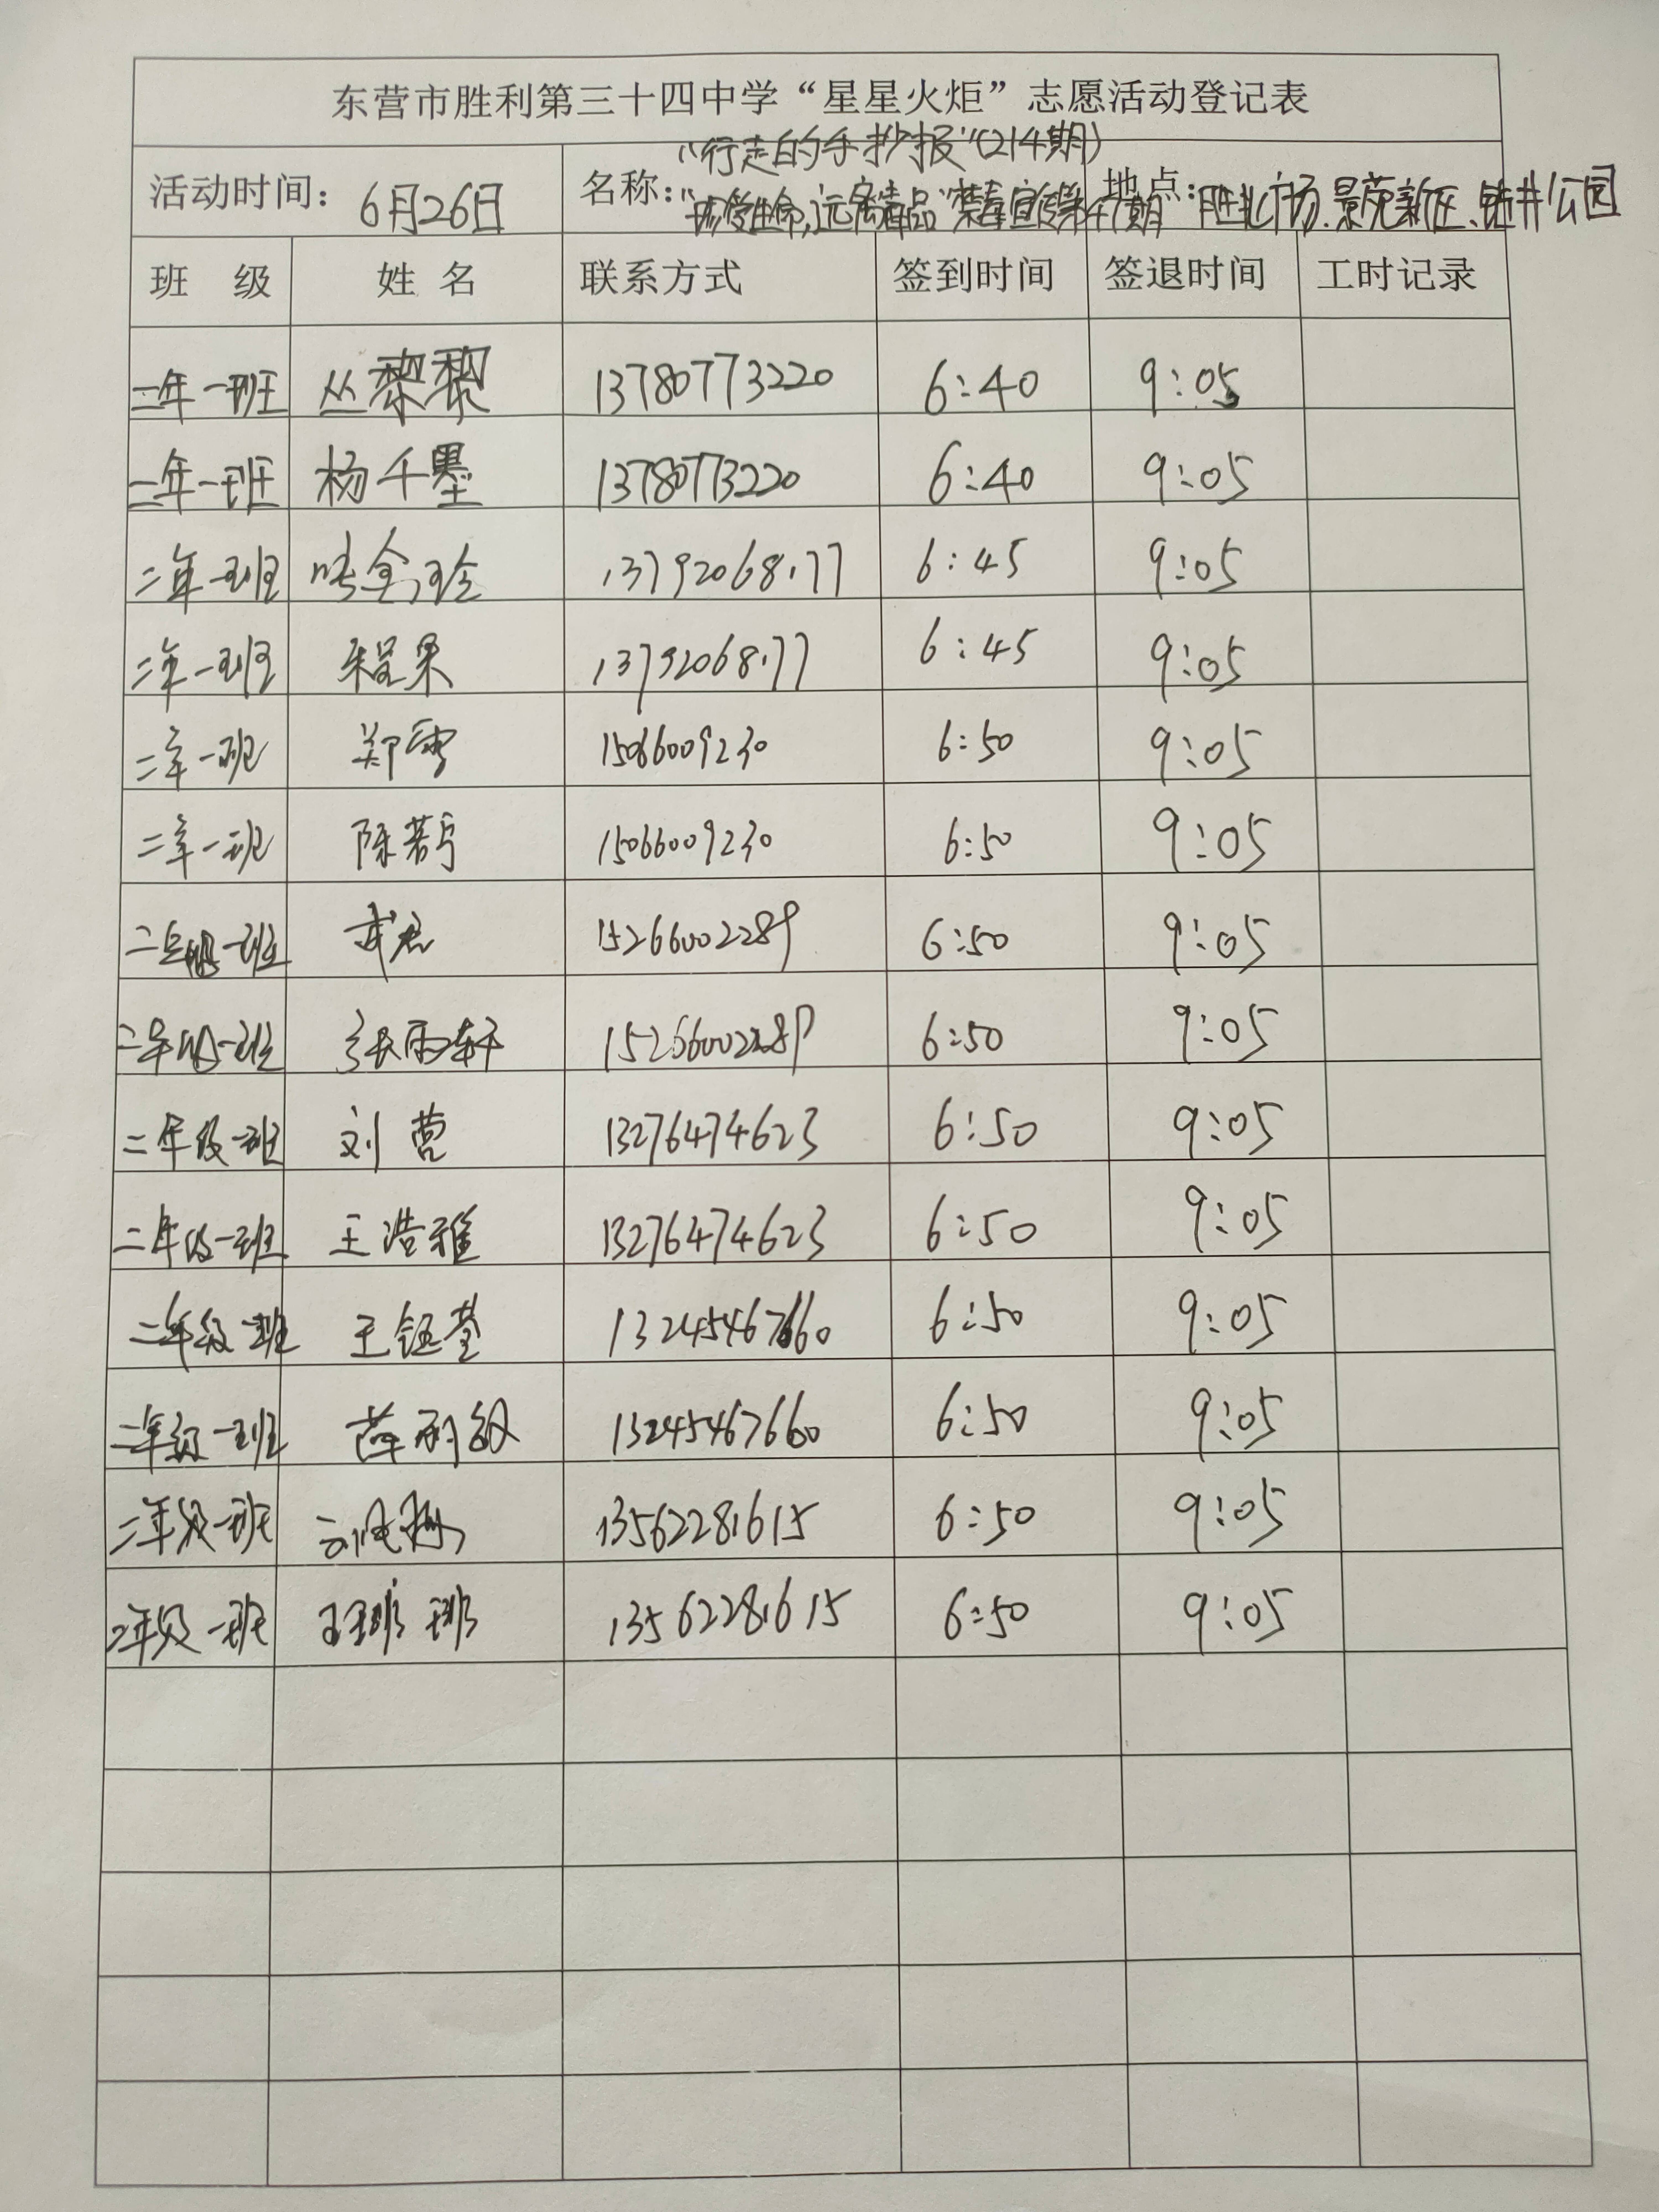 东营市胜利第三十四中学“星星火炬”志愿活动登记表
“行走的手抄报”（214期）
活动时间：6月26日 名称：“珍爱生命，远离毒品”禁毒宣传 期 地点：胜北广场、景苑新区、钻井公园
班 级 姓 名 联系方式 签到时间 签退时间 工时记录
二年一班 丛黎黎 13780773220 6:40 9:05
二年一班 杨千墨 13780773220 6:40 9:05
二年一班 13792068177 6:45 9:05
二年一班 程果 13792068177 6:45 9:05
二年一班 郑雪 15066009230 6:50 9:05
二年一班 陈若 15066009230 6:50 9:05
二年级一班 武君 15266002289 6:50 9:05
二年级一班 张雨轩 15266002289 6:50 9:05
二年级一班 刘营 13276474623 6:50 9:05
二年级一班 王浩雅 13276474623 6:50 9:05
二年级一班 王钰莹 13245467660 6:50 9:05
二年级一班 薛丽敏 13245467660 6:50 9:05
二年级一班 13562281615 6:50 9:05
二年级一班 13562281615 6:50 9:05